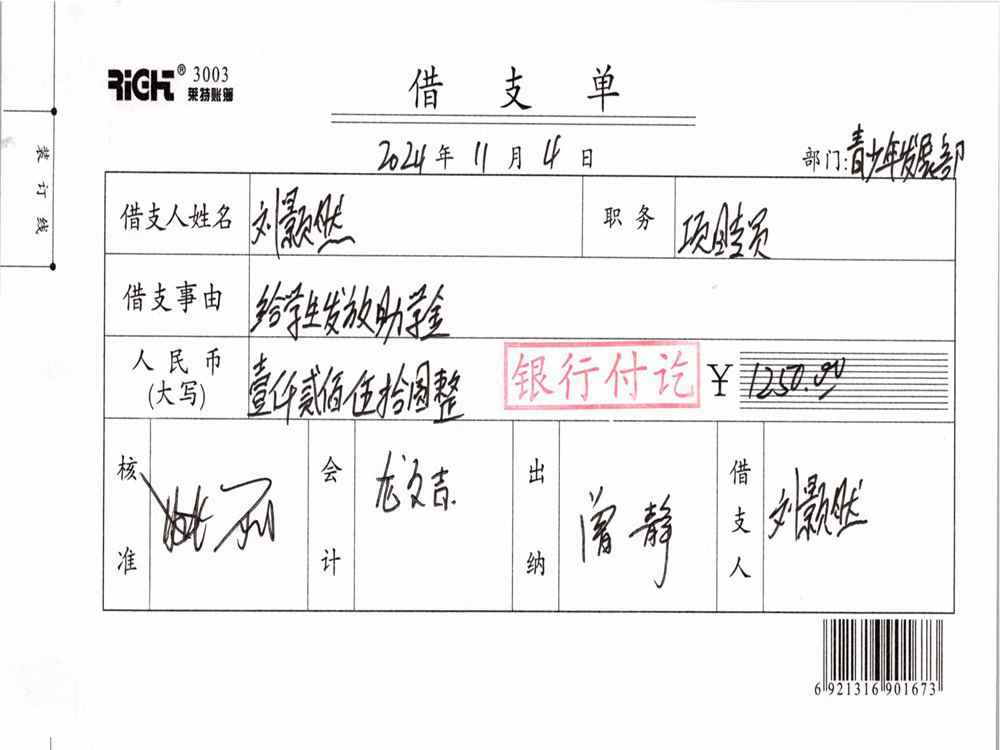 RiGHT® 3003
莱特账簿
借支单
2024年11月4日
部门:青少年发展部
装订线
借支人姓名 刘颢然 职务 项目专员
借支事由 给学生发放助学金
人民币(大写) 壹仟贰佰伍拾圆整 银行付讫 ¥1250.00
核准 会计 龙文吉 出纳 曾静 借支人 刘颢然
6 921316 901673